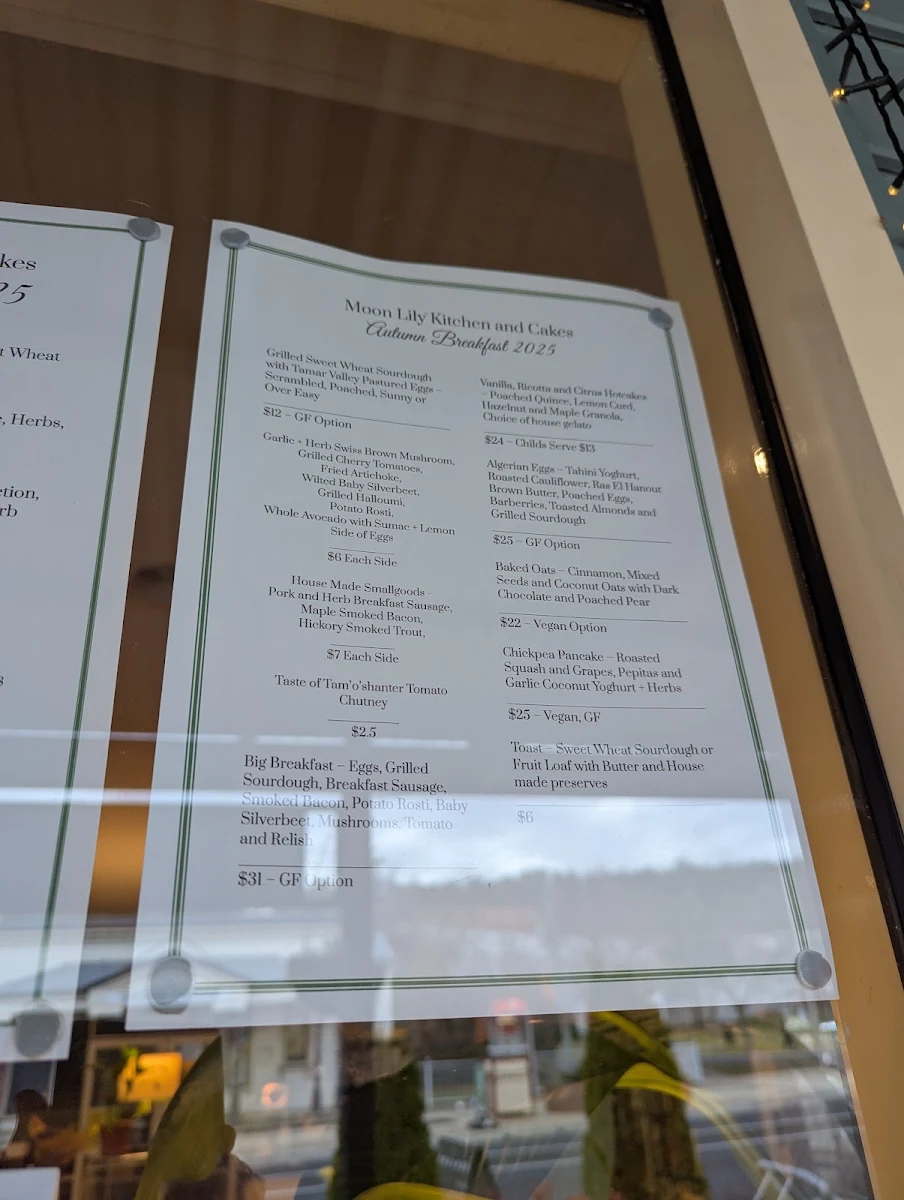 kes
25
t Wheat
, Herbs,
tion,
rb
s
Moon Lily Kitchen and Cakes
Autumn Breakfast 2025
Grilled Sweet Wheat Sourdough
with Tamar Valley Pastured Eggs –
Scrambled, Poached, Sunny or
Over Easy
$12 – GF Option
Garlic + Herb Swiss Brown Mushroom,
Grilled Cherry Tomatoes,
Fried Artichoke,
Wilted Baby Silverbeet,
Grilled Halloumi,
Potato Rosti,
Whole Avocado with Sumac + Lemon
Side of Eggs
$6 Each Side
House Made Smallgoods -
Pork and Herb Breakfast Sausage,
Maple Smoked Bacon,
Hickory Smoked Trout,
$7 Each Side
Taste of Tam'o'shanter Tomato
Chutney
$2.5
Big Breakfast – Eggs, Grilled
Sourdough, Breakfast Sausage,
Smoked Bacon, Potato Rosti, Baby
Silverbeet, Mushrooms, Tomato
and Relish
$31 – GF Option
Vanilla, Ricotta and Citrus Hotcakes
– Poached Quince, Lemon Curd,
Hazelnut and Maple Granola,
Choice of house gelato
$24 – Childs Serve $13
Algerian Eggs – Tahini Yoghurt,
Roasted Cauliflower, Ras El Hanout
Brown Butter, Poached Eggs,
Barberries, Toasted Almonds and
Grilled Sourdough
$25 – GF Option
Baked Oats – Cinnamon, Mixed
Seeds and Coconut Oats with Dark
Chocolate and Poached Pear
$22 – Vegan Option
Chickpea Pancake – Roasted
Squash and Grapes, Pepitas and
Garlic Coconut Yoghurt + Herbs
$25 – Vegan, GF
Toast – Sweet Wheat Sourdough or
Fruit Loaf with Butter and House
made preserves
$6